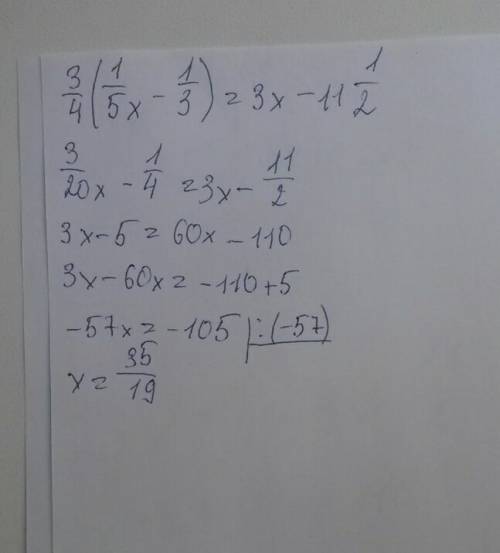 3/4(1/5x - 1/3) = 3x - 11 1/2
3/20x - 1/4 = 3x - 11/2
3x - 5 = 60x - 110
3x - 60x = -110 + 5
-57x = -105 |:(-57)
x = 35/19